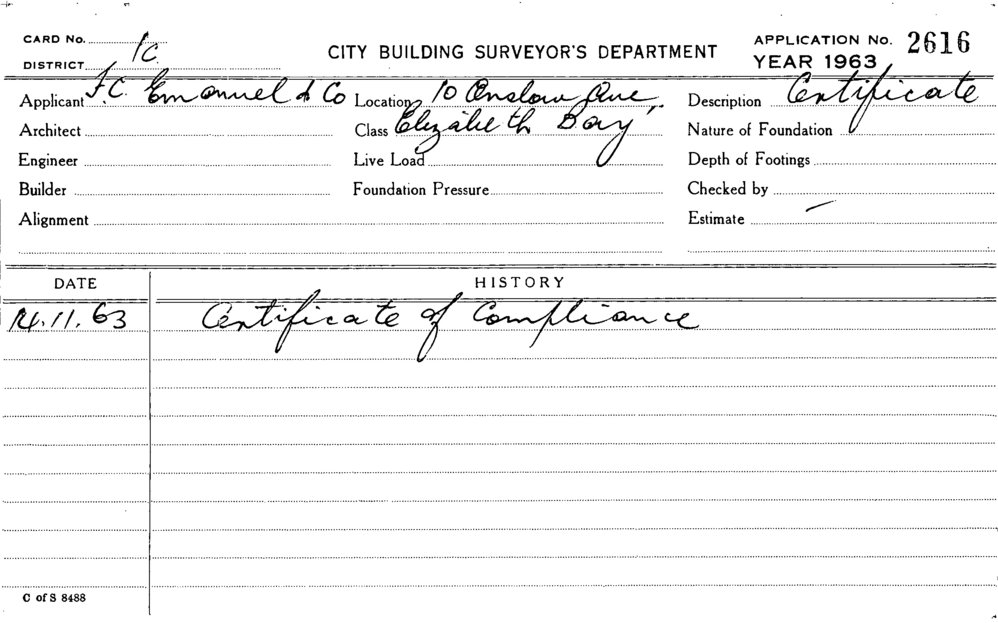 CARD No.
DISTRICT 1C.
CITY BUILDING SURVEYOR'S DEPARTMENT
APPLICATION No. 2616
YEAR 1963
Applicant F.C. Emanuel & Co Location 10 Onslow Ave, Description Certificate
Architect Class Elizabeth Bay Nature of Foundation
Engineer Live Load Depth of Footings
Builder Foundation Pressure Checked by
Alignment Estimate
DATE HISTORY
14.11.63 Certificate of Compliance
C of S 8488